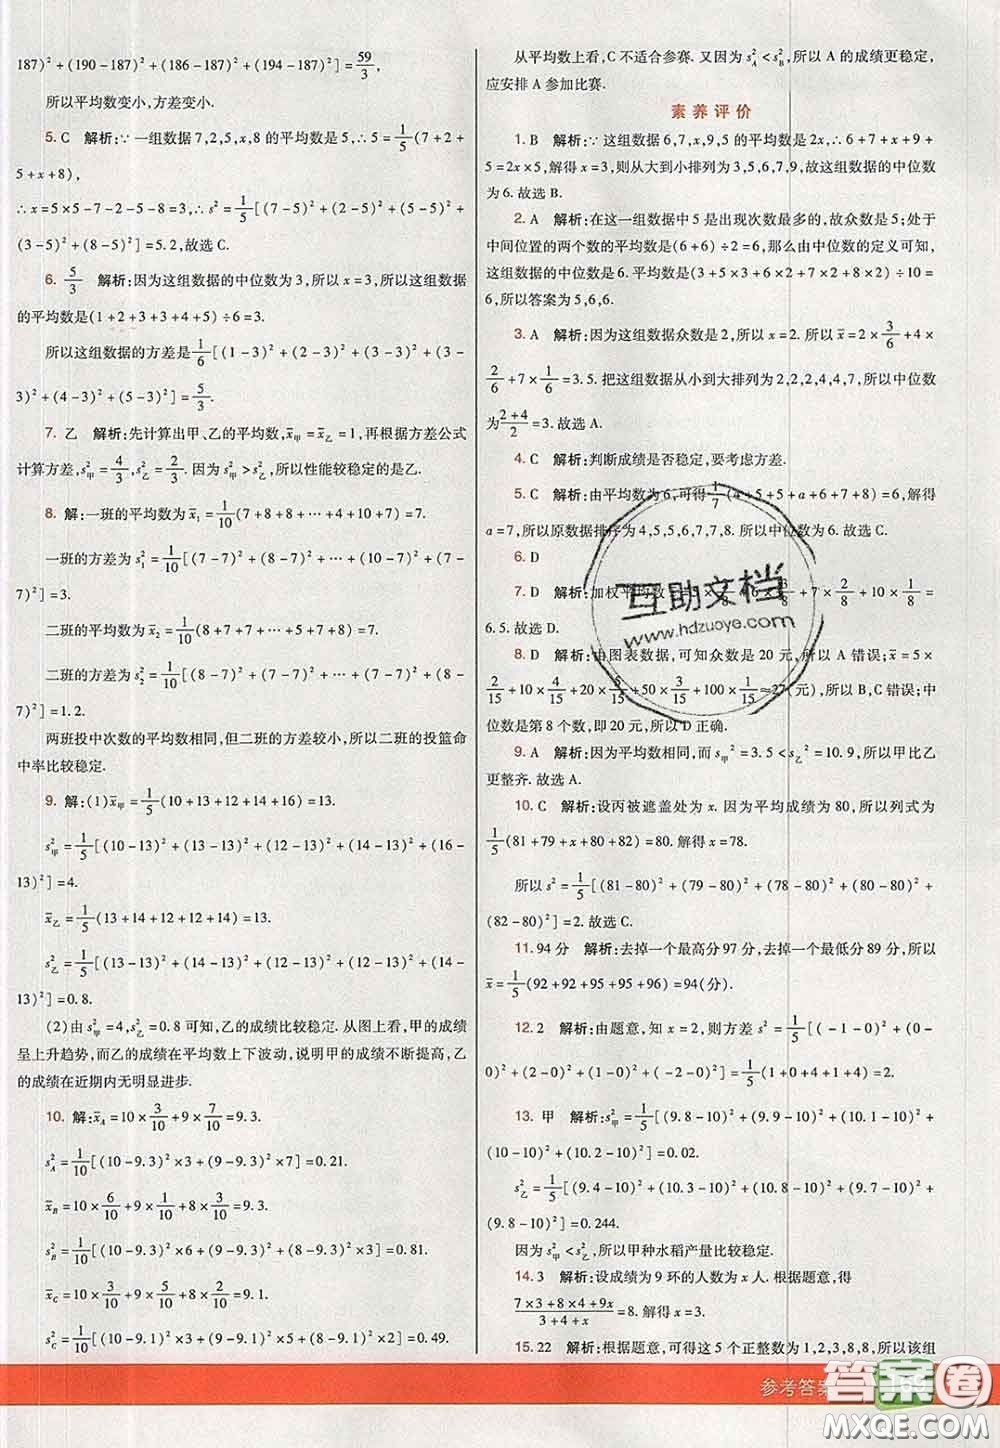 187)²+(190-187)²+(186-187)²+(194-187)²]=59/3,
所以平均数变小,方差变小.
5. C 解析:∵一组数据7,2,5,x,8的平均数是5,∴5=1/5(7+2+
5+x+8),
∴x=5×5-7-2-5-8=3,∴s²=1/5[(7-5)²+(2-5)²+(5-5)²+
(3-5)²+(8-5)²]=5.2,故选C.
6. 5/3 解析:因为这组数据的中位数为3,所以x=3,所以这组数据
的平均数是(1+2+3+3+4+5)÷6=3.
所以这组数据的方差是1/6[(1-3)²+(2-3)²+(3-3)²+(3-
3)²+(4-3)²+(5-3)²]=5/3.
7. 乙 解析:先计算出甲、乙的平均数,x̄甲=x̄乙=1,再根据方差公式
计算方差,s²甲=4/3,s²乙=2/3.因为s²甲>s²乙,所以性能较稳定的是乙.
8. 解:一班的平均数为x̄₁=1/10(7+8+8+…+4+7)=7.
一班的方差为s²₁=1/10[(7-7)²+(8-7)²+…+(10-7)²+(7-
7)²]=3.
二班的平均数为x̄₂=1/10(8+7+7+…+6+8)=7.
二班的方差为s²₂=1/10[(8-7)²+(7-7)²+…+(6-7)²+(8-
7)²]=1.2.
两班投中次数的平均数相同,但二班的方差较小,所以二班的投篮命
中率比较稳定.
9. 解:(1)x̄甲=1/5(10+13+12+14+16)=13.
s²甲=1/5[(10-13)²+(13-13)²+(12-13)²+(14-13)²+(16-
13)²]=4.
x̄乙=1/5(13+14+12+12+14)=13.
s²乙=1/5[(13-13)²+(14-13)²+(12-13)²+(12-13)²+(14-
13)²]=0.8.
(2)由s²甲=4,s²乙=0.8可知,乙的成绩比较稳定.从图上看,甲的成绩
呈上升趋势,而乙的成绩在平均数上下波动,说明甲的成绩不断提高,乙
的成绩在近期内无明显进步.
10. 解:x̄A=10×3/10+9×7/10=9.3.
s²A=1/10[(10-9.3)²×3+(9-9.3)²×7]=0.21.
x̄B=10×6/10+9×1/10+8×3/10=9.3.
s²B=1/10[(10-9.3)²×6+(9-9.3)²+(8-9.3)²×3]=0.81.
x̄C=10×3/10+9×5/10+8×2/10=9.1.
s²C=1/10[(10-9.1)²×3+(9-9.1)²×5+(8-9.1)²×2]=0.49.
从平均数上看,C不适合参赛.又因为s²A<s²B,所以A的成绩更稳定,
应安排A参加比赛.
素养评价
1. B 解析:∵这组数据6,7,x,9,5的平均数是2x,∴6+7+x+9+
5=2x×5,解得x=3,则从大到小排列为3,5,6,7,9,故这组数据的中位数
为6.故选B.
2. A 解析:在这一组数据中5是出现次数最多的,故众数是5;处于
中间位置的两个数的平均数是(6+6)÷2=6,那么由中位数的定义可知,
这组数据的中位数是6.平均数是(3+5×3+6×2+7×2+8×2)÷10=
6,所以答案为5,6,6.
3. A 解析:因为这组数据众数是2,所以x=2.所以x̄=2×3/6+4×
2/6+7×1/6=3.5.把这组数据从小到大排列为2,2,2,4,4,7,所以中位数
为(2+4)/2=3.故选A.
4. C 解析:判断成绩是否稳定,要考虑方差.
5. C 解析:由平均数为6,可得1/7(4+5+5+a+6+7+8)=6,解得
a=7,所以原数据排序为4,5,5,6,7,7,8.所以中位数为6.故选C.
6. D
7. D 解析:加权平均数=5×2/8+6×3/8+7×2/8+10×1/8=
6.5.故选D.
8. D 解析:由图表数据,可知众数是20元,所以A错误;x̄=5×
2/15+10×4/15+20×5/15+50×3/15+100×1/15≈27(元),所以B、C错误;中
位数是第8个数,即20元,所以D正确.
9. A 解析:因为平均数相同,而s甲²=3.5<s乙²=10.9,所以甲比乙
更整齐.故选A.
10. C 解析:设丙被遮盖处为x.因为平均成绩为80,所以列式为
1/5(81+79+x+80+82)=80.解得x=78.
所以s²=1/5[(81-80)²+(79-80)²+(78-80)²+(80-80)²+
(82-80)²]=2.故选C.
11. 94分 解析:去掉一个最高分97分,去掉一个最低分89分,所以
x̄=1/5(92+92+95+95+96)=94(分).
12. 2 解析:由题意,知x=0,则方差s²=1/5[(-1-0)²+(0-
0)²+(2-0)²+(1-0)²+(-2-0)²]=1/5(1+0+4+1+4)=2.
13. 甲 解析:s²甲=1/5[(9.8-10)²+(9.9-10)²+(10.1-10)²
+(10-10)²+(10.2-10)²]=0.02.
s²乙=1/5[(9.4-10)²+(10.3-10)²+(10.8-10)²+(9.7-10)²+
(9.8-10)²]=0.244.
因为s²甲<s²乙,所以甲种水稻产量比较稳定.
14. 3 解析:设成绩为9环的人数为x人.根据题意,得
(7×3+8×4+9x)/(3+4+x)=8.解得x=3.
15. 22 解析:根据题意,可得这5个正整数为1,2,3,8,8,所以该组
互助文档
www.hdzuoye.com
参考答案
答案圈
MXQE.COM